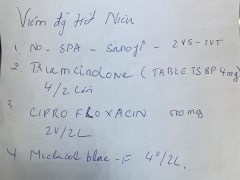 Viêm đg tiết Niệu
1. No - SPA - Sanofi - 2VS - 2VT
2. Triamcindone (TABLET BP 4mg)
4/2 Lần
3. CIPRO FLOXACIN 500mg
2V/2L
4. blue - F 4V/2L.